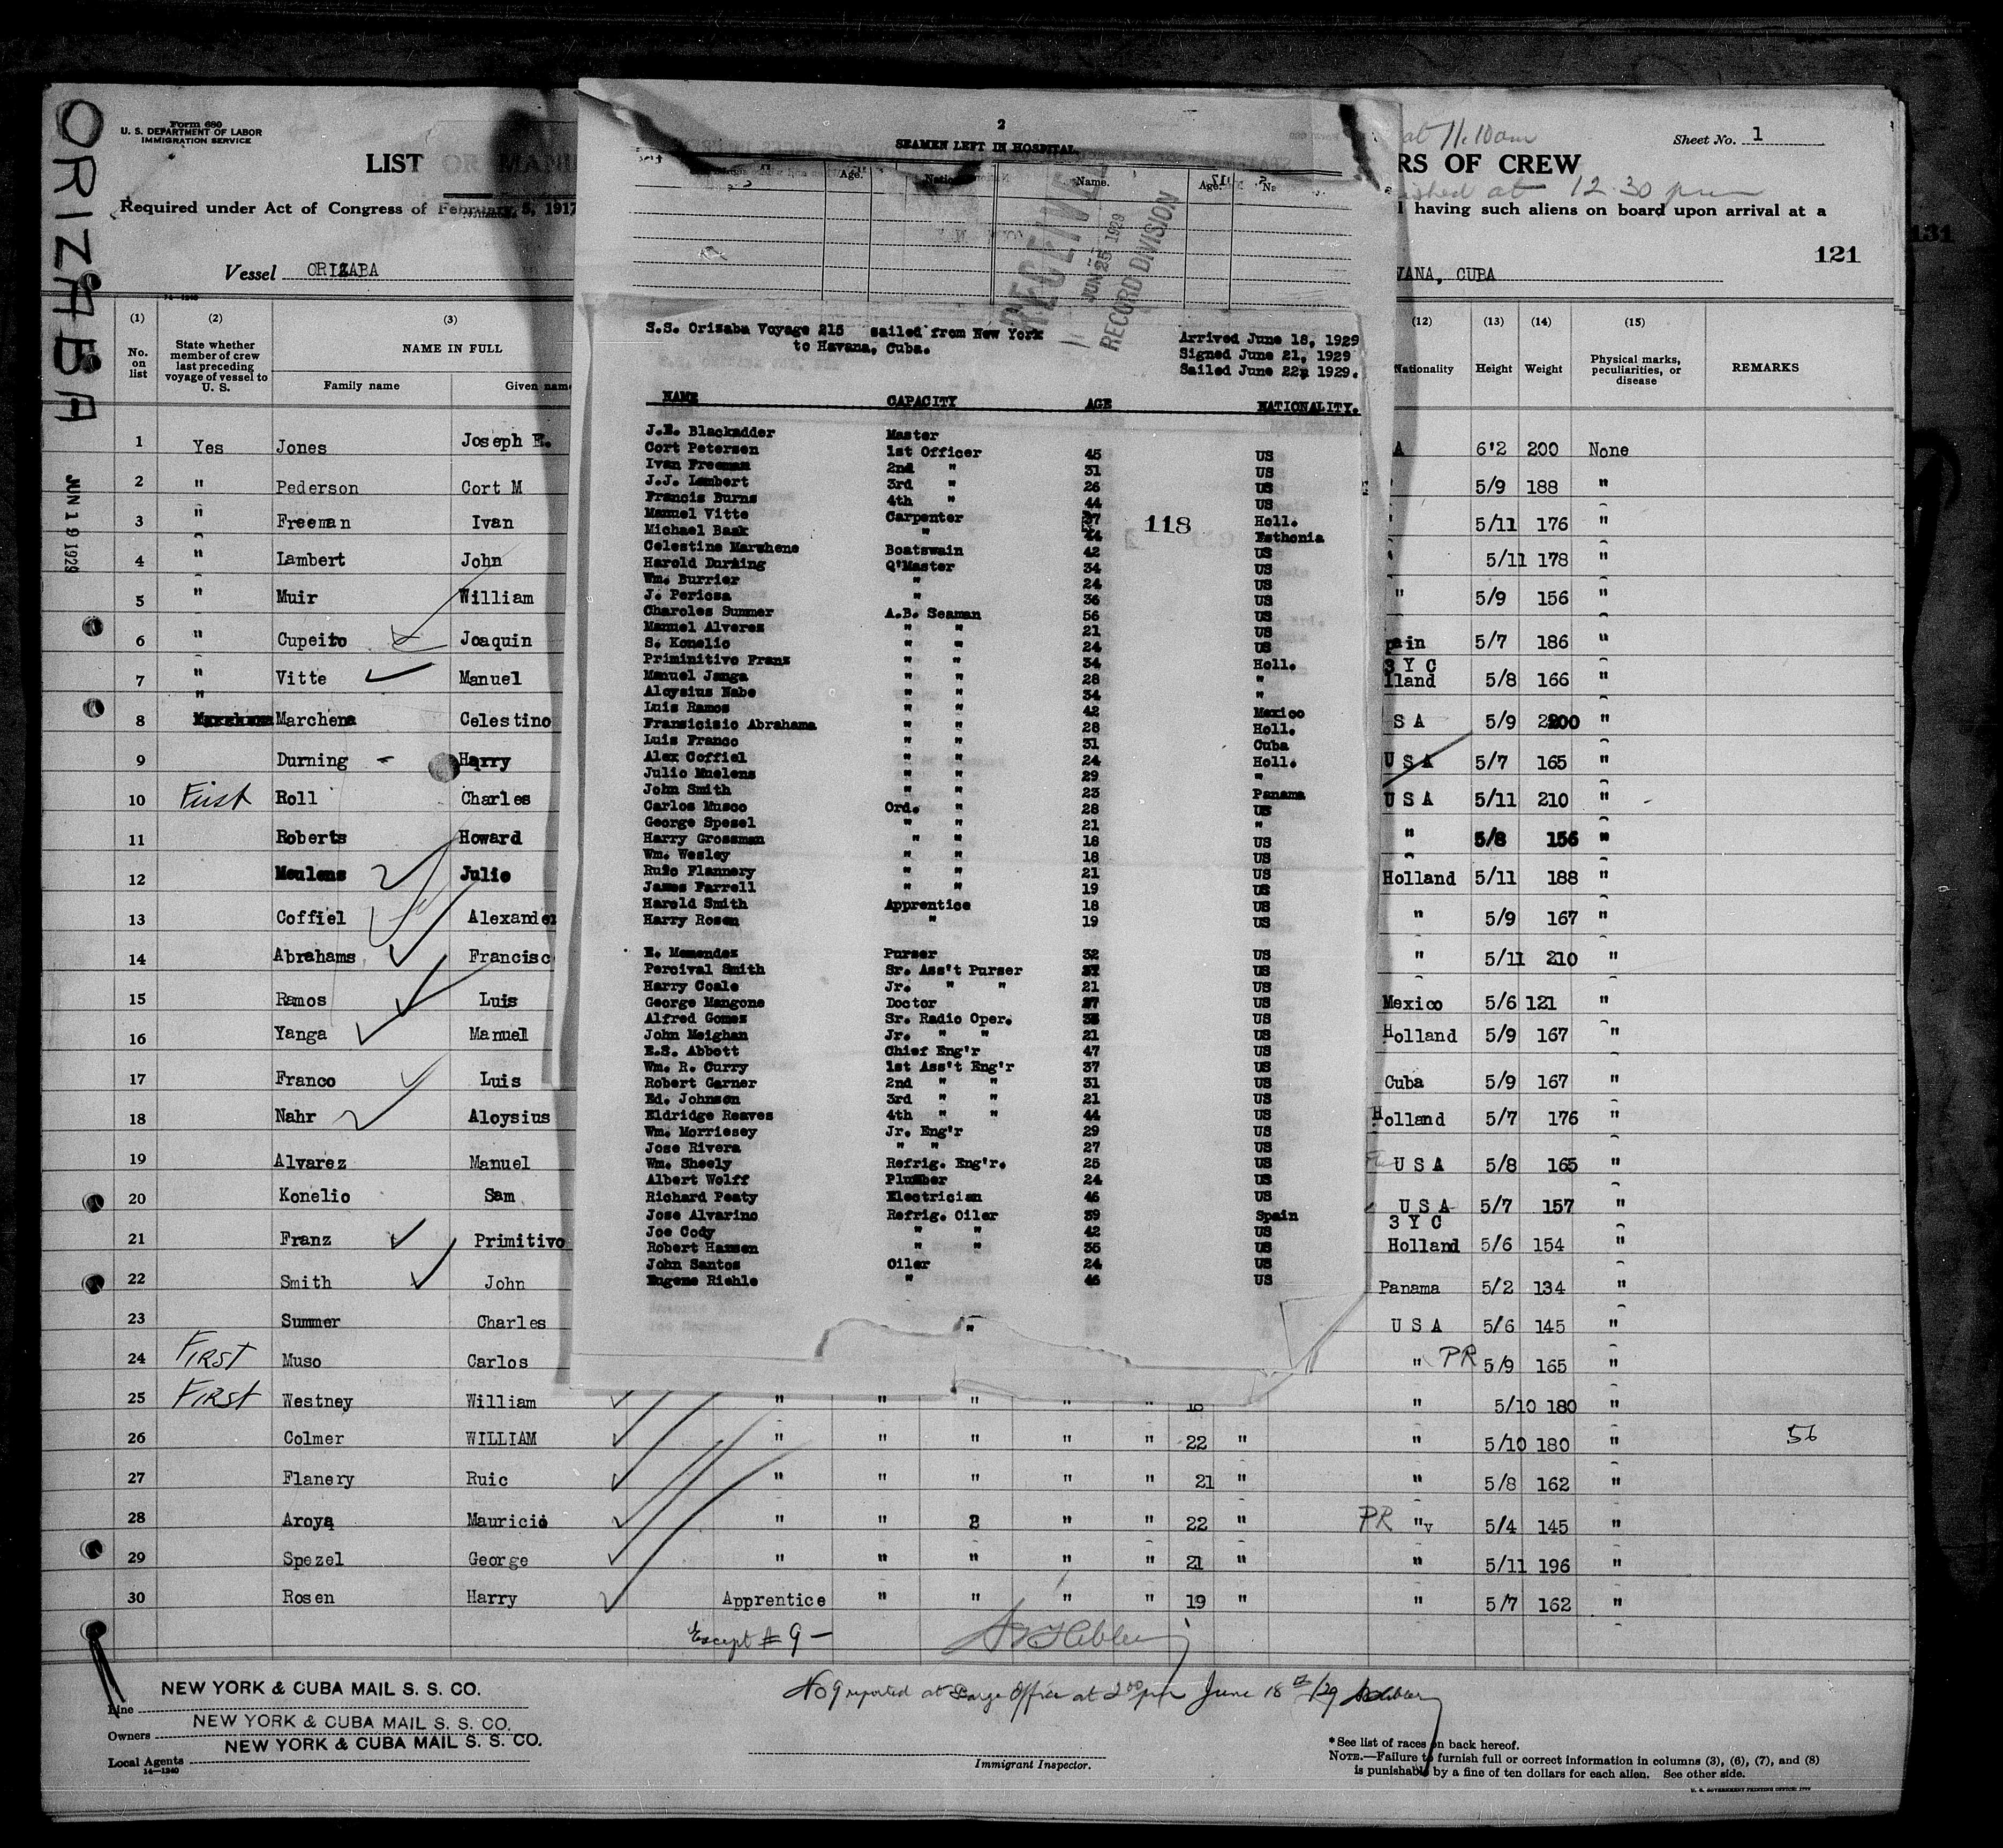 ORIZABA
JUN 19 1929
Form 680
U. S. DEPARTMENT OF LABOR
IMMIGRATION SERVICE
LIST OR MANI
Required under Act of Congress of February 5, 1917
Vessel ORIZABA
at 11.10am
Sheet No. 1
RS OF CREW
ished at 12.30 pm
having such aliens on board upon arrival at a
121
131
VANA, CUBA
(1) No. on list
(2) State whether member of crew last preceding voyage of vessel to U. S.
(3) NAME IN FULL
Family name Given name
(12) Nationality
(13) Height
(14) Weight
(15) Physical marks, peculiarities, or disease
REMARKS
1 Yes Jones Joseph E. A 6'2 200 None
2 " Pederson Cort M 5/9 188 "
3 " Freeman Ivan " 5/11 176 "
4 " Lambert John 5/11 178 "
5 " Muir William " 5/9 156 "
6 " Cupeito Joaquin pain 5/7 186 "
7 " Vitte Manuel 3 Y C lland 5/8 166 "
8 " Marchena Celestino S A 5/9 200 "
9 Durning - Harry U S A 5/7 165 "
10 First Roll Charles U S A 5/11 210 "
11 Roberts Howard " 5/8 156 "
12 Meulens Julio Holland 5/11 188 "
13 Coffiel Alexander " 5/9 167 "
14 Abrahams Francisc " 5/11 210 "
15 Ramos Luis Mexico 5/6 121 "
16 Yanga Manuel Holland 5/9 167 "
17 Franco Luis Cuba 5/9 167 "
18 Nahr Aloysius Holland 5/7 176 "
19 Alvarez Manuel U S A 5/8 165 "
20 Konelio Sam U S A 5/7 157 "
21 Franz Primitivo 3 Y C Holland 5/6 154 "
22 Smith John Panama 5/2 134 "
23 Summer Charles U S A 5/6 145 "
24 First Muso Carlos " PR 5/9 165 "
25 First Westney William " " " " " 18 " 5/10 180 "
26 Colmer WILLIAM " " " " " 22 " " 5/10 180 " 56
27 Flanery Ruic " " " " " 21 " " 5/8 162 "
28 Aroya Mauricio " " 2 " " 22 " PR " 5/4 145 "
29 Spezel George " " " " " 21 " " 5/11 196 "
30 Rosen Harry Apprentice " " " " 19 " " 5/7 162 "
Except # 9 -
No 9 reported at Barge Office at 2 00 pm June 18th/29
Line NEW YORK & CUBA MAIL S. S. CO.
Owners NEW YORK & CUBA MAIL S. S. CO.
Local Agents NEW YORK & CUBA MAIL S. S. CO.
14—1240
Immigrant Inspector.
*See list of races on back hereof.
NOTE.—Failure to furnish full or correct information in columns (3), (6), (7), and (8)
is punishable by a fine of ten dollars for each alien. See other side.
U. S. GOVERNMENT PRINTING OFFICE
2
SEAMEN LEFT IN HOSPITAL
Age. Name. Age.
RECEIVED
JUN 25 1929
RECORD DIVISION
S.S. Orizaba Voyage 215 sailed from New York
to Havana, Cuba.
Arrived June 18, 1929
Signed June 21, 1929
Sailed June 22, 1929.
NAME CAPACITY AGE NATIONALITY.
118
J.E. Blackadder Master
Cort Petersen 1st Officer 45 US
Ivan Freeman 2nd " 31 US
J.J. Lambert 3rd " 26 US
Francis Burns 4th " 44 US
Manuel Vitte Carpenter 37 Holl.
Michael Bask " 44 Esthonia
Celestine Marchene Boatswain 42 US
Harold Durning Q'Master 34 US
Wm. Burrier " 24 US
J. Periosa " 36 US
Charoles Summer A.B. Seaman 56 US
Manuel Alverez " " 21 US
S. Konelio " " 24 US
Priminitivo Franz " " 34 Holl.
Manuel Janga " " 28 "
Aloysius Nabe " " 34 "
Luis Ramos " " 42 Mexico
Fransicisio Abrahama " " 28 Holl.
Luis Franco " " 31 Cuba
Alex Coffiel " " 24 Holl.
Julio Muelens " " 29 "
John Smith " " 23 Panama
Carlos Musco Ord. " 28 US
George Spesel " " 21 "
Harry Grossman " " 18 US
Wm. Wesley " " 18 US
Ruic Flannery " " 21 US
James Farrell " " 19 US
Harold Smith Apprentice 18 US
Harry Rosen " 19 US
E. Menendez Purser 32 US
Percival Smith Sr. Ass't Purser US
Harry Coale Jr. " " 21 US
George Mangone Doctor US
Alfred Gomez Sr. Radio Oper. US
John Meighan Jr. " " 21 US
E.S. Abbott Chief Eng'r 47 US
Wm. R. Curry 1st Ass't Eng'r 37 US
Robert Garner 2nd " " 31 US
Ed. Johnson 3rd " " 21 US
Eldridge Reaves 4th " " 44 US
Wm. Morriesey Jr. Eng'r 29 US
Jose Rivera " " 27 US
Wm. Sheely Refrig. Eng'r. 25 US
Albert Wolff Plumber 24 US
Richard Peaty Electrician 46 US
Jose Alvarino Refrig. Oiler 39 Spain
Joe Cody " " 42 US
Robert Hansen " " 35 US
John Santos Oiler 24 US
Eugene Riehle " 46 US
"